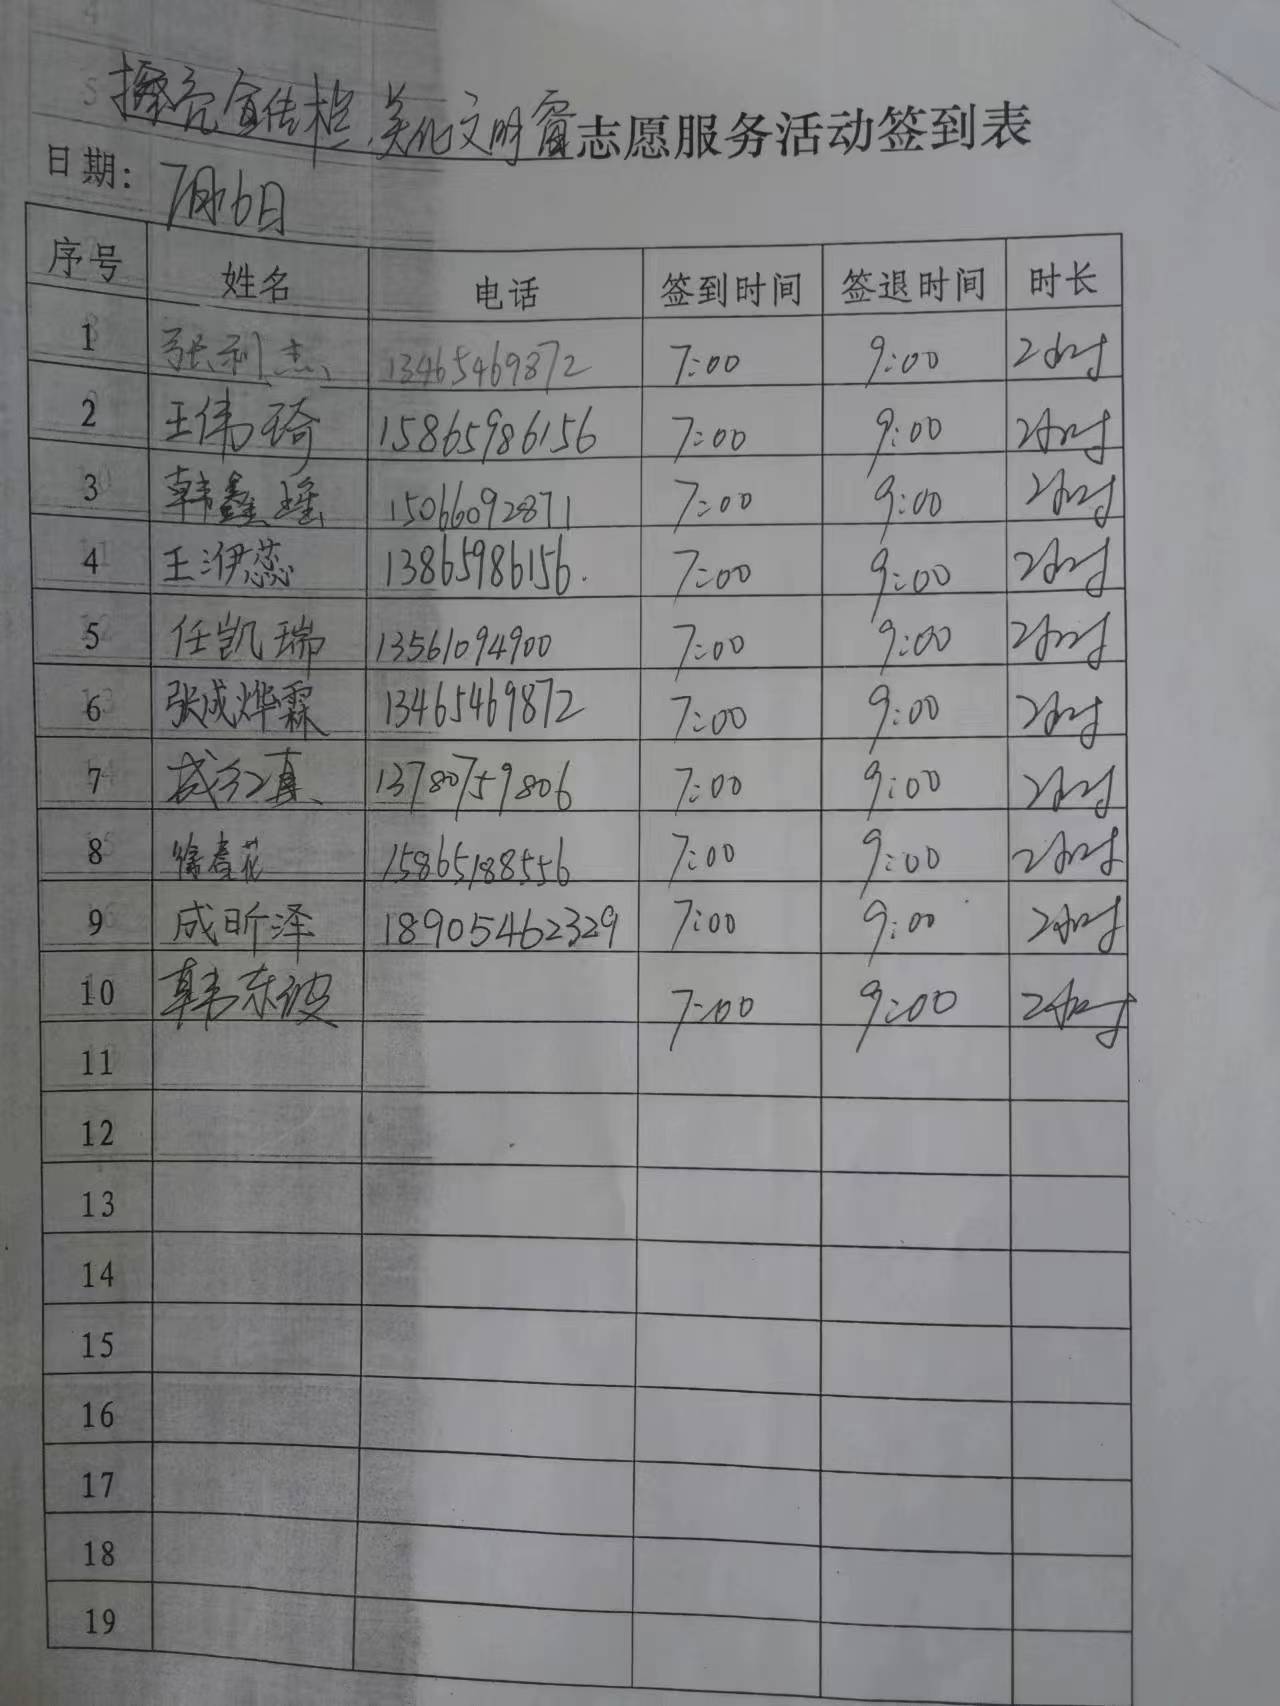 擦亮宣传栏、美化文明窗志愿服务活动签到表
日期：7月16日
序号 姓名 电话 签到时间 签退时间 时长
1 张利杰 13465469872 7:00 9:00 2小时
2 王伟琦 15865986156 7:00 9:00 2小时
3 韩鑫瑶 15066092871 7:00 9:00 2小时
4 王洢蕊 13865986156 7:00 9:00 2小时
5 任凯瑞 13561094900 7:00 9:00 2小时
6 张成烨霖 13465469872 7:00 9:00 2小时
7 成红真 13780759806 7:00 9:00 2小时
8 徐春花 15865188556 7:00 9:00 2小时
9 成昕泽 18905462329 7:00 9:00 2小时
10 韩东波 7:00 9:00 2小时
11
12
13
14
15
16
17
18
19